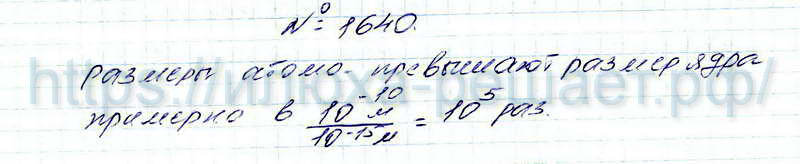 № 1640.
размеры атома превышают размер ядра
примерно в 10⁻¹⁰ м / 10⁻¹⁵ м = 10⁵ раз.
https://илюха-решает.рф/